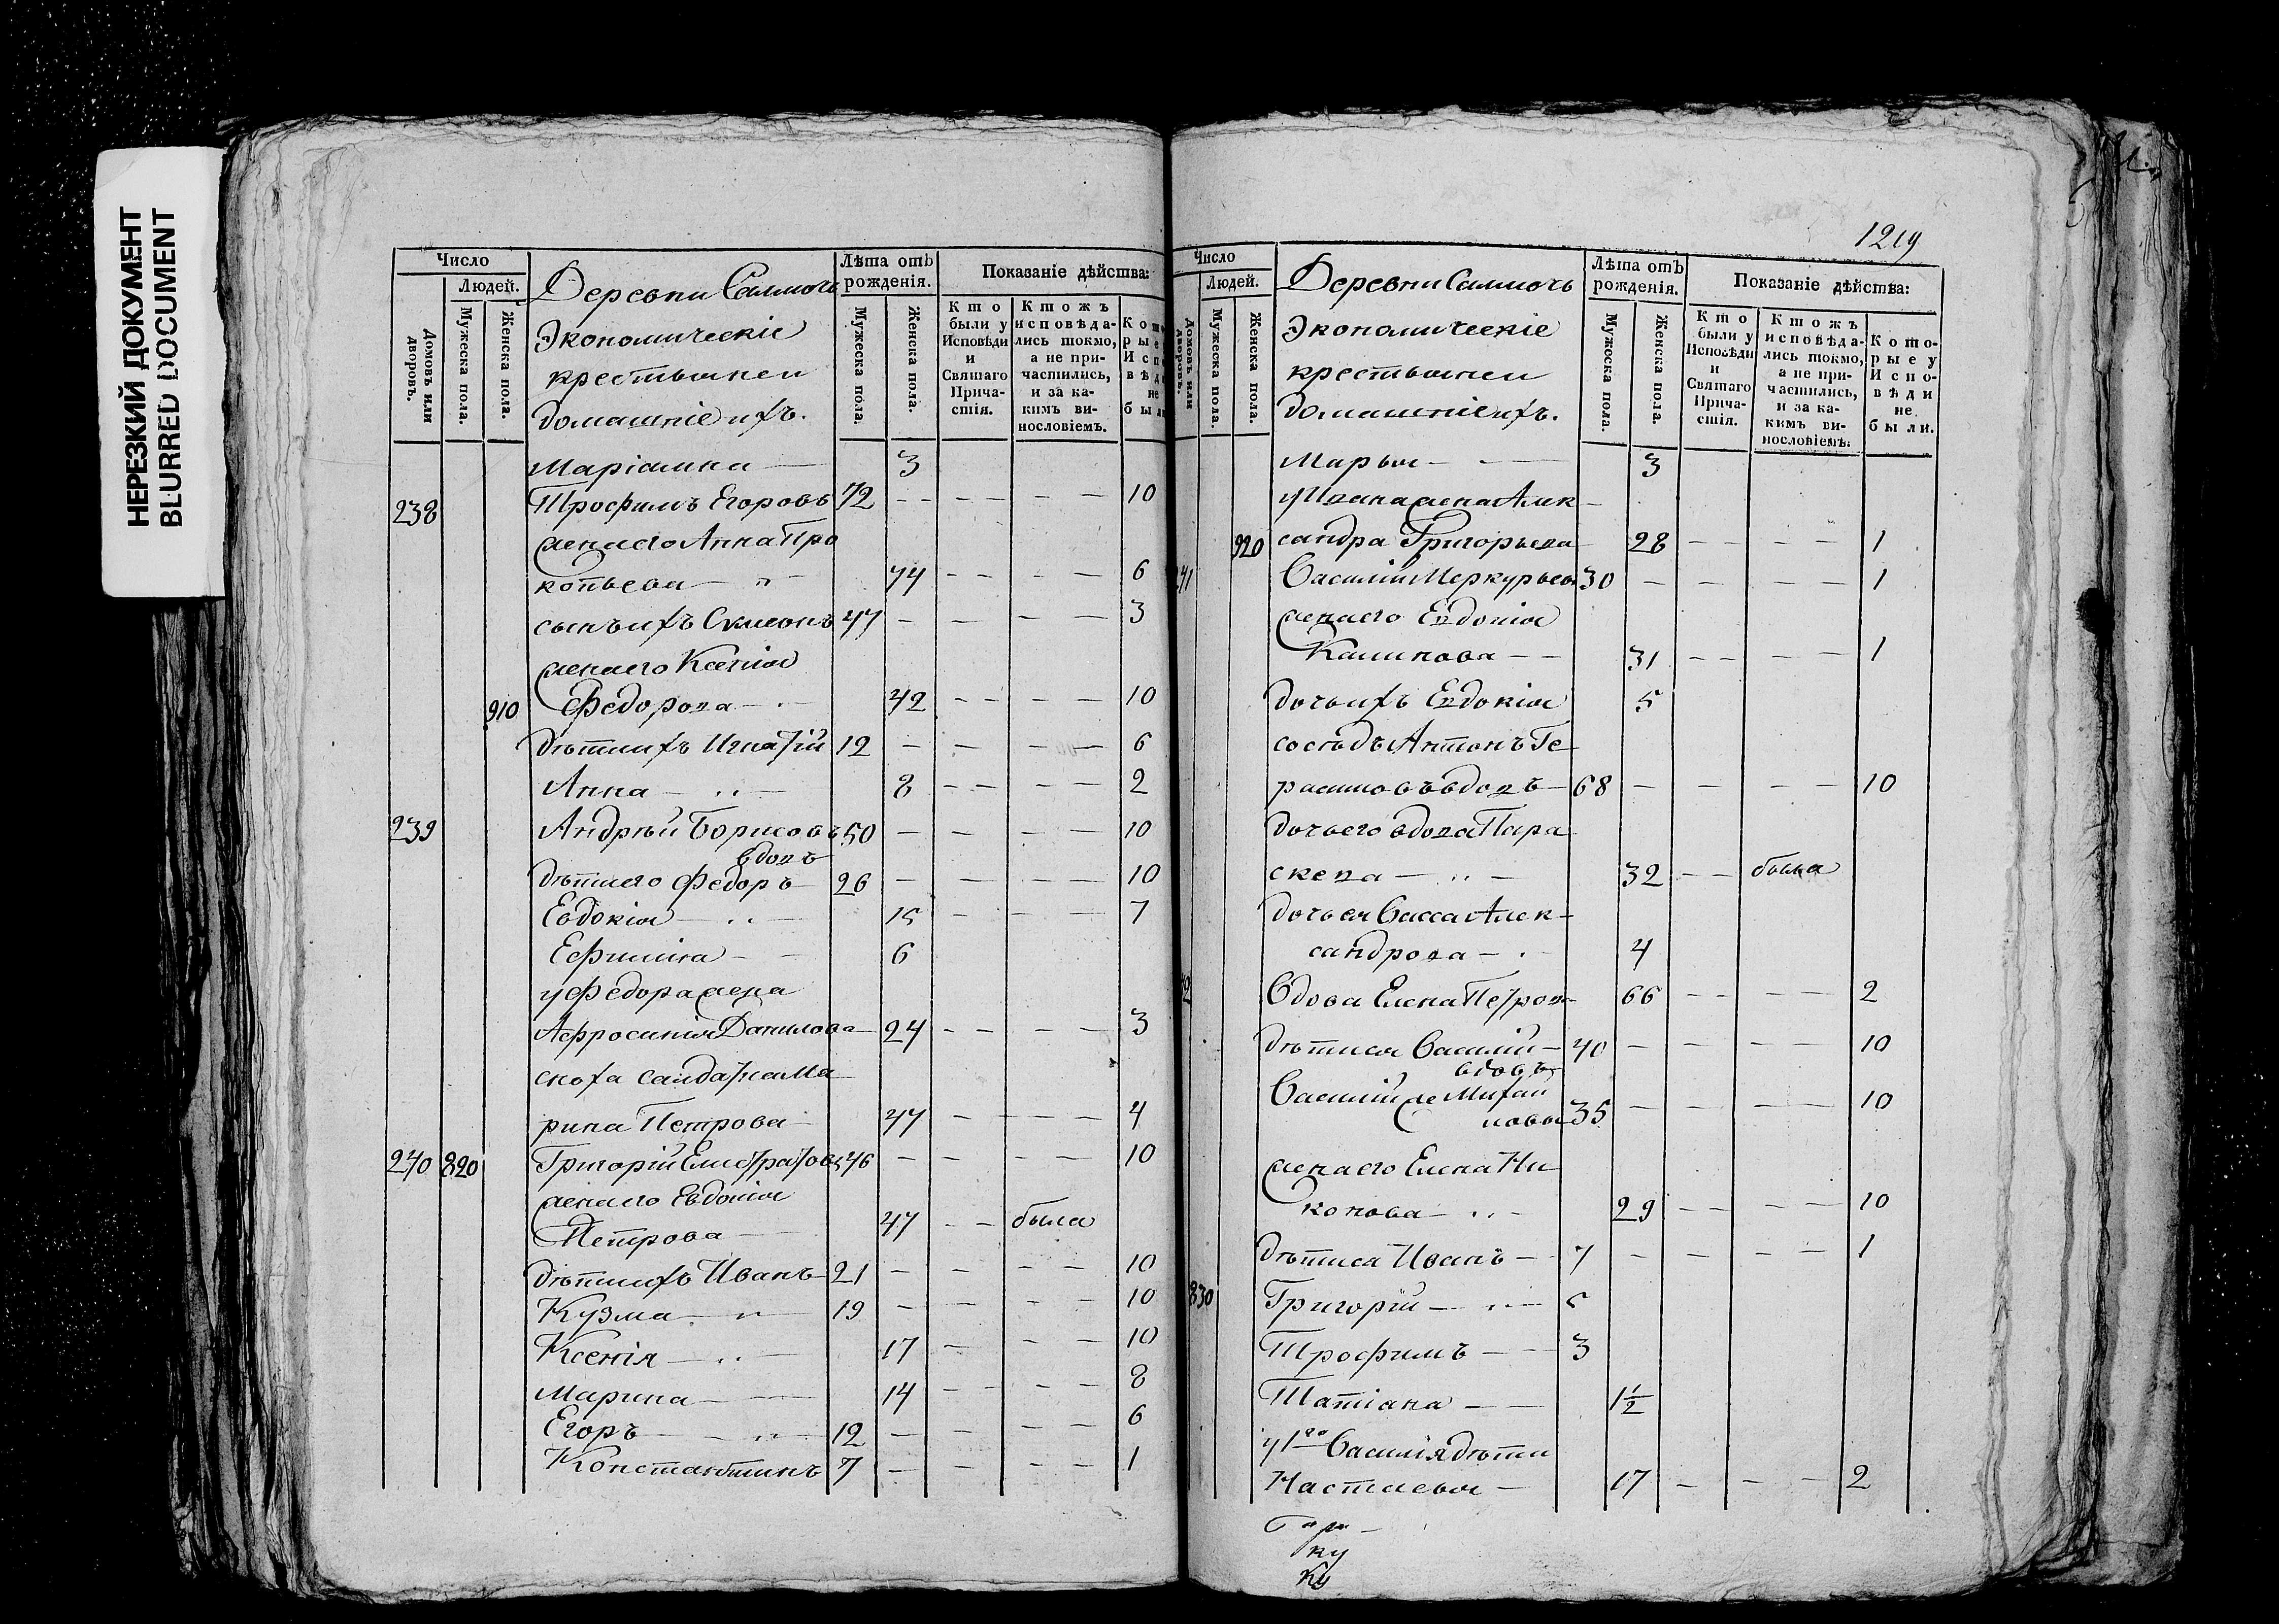 НЕРЕЗКИЙ ДОКУМЕНТ
BLURRED DOCUMENT
Число
Людей.
Домовъ или дворовъ.
Мужеска пола.
Женска пола.
Деревни Салмочь
Экономическіе
крестьянеи
домашніе ихъ.
Лѣта отъ рожденія.
Мужеска пола.
Женска пола.
Показаніе дѣйства:
Кто были у Исповѣди и Святаго Причастія.
Ктожъ исповѣдались токмо, а не причастились, и за какимъ винословіемъ.
Которые Испвѣди не были
Маріамна — 3
238 Трофимъ Егоровъ 72 - - - - - — 10
жена его Анна Про
копьева — 74 - - - - — 6
сынъ ихъ Симеонъ 47 - - - — 3
жена его Ксенія
910 Федорова — 42 - - - - — 10
дѣти ихъ Игнатій 12 — — — — 6
Анна — 8 - - - - — 2
239 Андрей Борисовъ 50 — — — — 10
вдовъ
дѣти его Федоръ — 26 — — — — 10
Евдокія — 15 - - — 7
Ефимія — 6
у Федора жена
Афросинія Данилова — 24 - - - — 3
сноха солдатка Ма
рина Петрова — 47 - - - — 4
240 820 Григорій Елистратовъ 46 — — — — 10
жена его Евдокія
Петрова — 47 - — была
дѣти ихъ Иванъ — 21 — — — — 10
Кузма — 19 — — - — 10
Ксенія — 17 - — - — 10
Марина — 14 - - - — 8
Егоръ — 12 — — - — 6
Константинъ 7 — — - — 1
1219
Число
Людей.
Домовъ или дворовъ.
Мужеска пола.
Женска пола.
Деревни Салмочь
Экономическіе
крестьянеи
домашніе ихъ.
Лѣта отъ рожденія.
Мужеска пола.
Женска пола.
Показаніе дѣйства:
Кто были у Исповѣди и Святаго Причастія.
Ктожъ исповѣдались токмо, а не причастились, и за какимъ винословіемъ.
Которые у Исповѣди не были.
Марья — 3
у Ивана жена Алек —
920 сандра Григорьева 28 — - - — 1
241 Василій Меркурьевъ 30 — — - — 1
жена его Евдокія
Калинова — 31 - - - — 1
дочь ихъ Евдокія 5
сосѣдъ Антонъ Ге
расимовъ вдовъ — 68 — — - — 10
дочь его вдова Пара
скева — 32 - — была
дочь ея Васса Алек —
сандрова — 4
42 Вдова Елена Петров — 66 - - - — 2
дѣти ея Василій — 40 — — - — 10
вдовъ
Василій же Михай
ловъ 35 — — - — 10
жена его Елена Ни
конова — 29 - - - — 10
дѣти ея Иванъ — 7 — — - — 1
830 Григорій — 5
Трофимъ — 3
Татіана — 1½
у 1го Василія дѣти
Настасья — 17 - - — 2